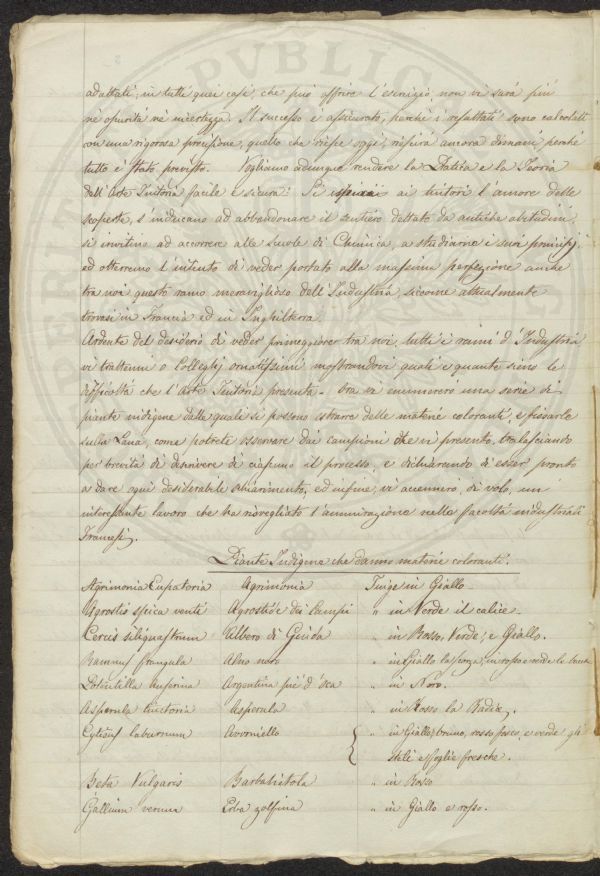 adattati; in tutti quei casi, che può offrire l'esercizio, non vi sarà più
nè oscurità nè incertezza. Il successo è assicurato, perchè i resultati sono calcolati
con una rigorosa precisione, quello che riesce oggi, riescirà ancora dimani, perchè
tutto è stato previsto. Vogliamo adunque rendere la Pratica e la Teoria
dell'Arte Tintoria facile e sicura? Si ispiri ai tintori l'amore delle
scoperte, s'inducano ad abbandonare il sentiero dettato da antiche abitudini,
si invitino ad accorrere alle scuole di Chimica, a studiarne i suoi principj,
ed otterremo l'intento di veder portato alla massima perfezione anche
tra noi questo ramo meraviglioso dell'Industria, siccome attualmente
trovasi in Francia ed in Inghilterra.
Ardente del desiderio di veder primeggiare tra noi, tutti i rami d'Industria
vi trattenni o Colleghi ornatissimi mostrandovi quali e quante sieno le
difficoltà che l'Arte Tintoria presenta. Ora vi enumererò una serie di
piante indigene dalle quali si possono estrarre delle materie coloranti, e fissarle
sulla Lana, come potrete osservare dai campioni che vi presento, tralasciando
per brevità di descrivere di ciascuno il processo, e dichiarando di esser pronto
a dare ogni desiderabile schiarimento, ed infine, vi accennerò, di volo, un
interessante lavoro che ha risvegliato l'ammirazione nelle facoltà industriali
Francesi.
Piante Indigene che danno materie coloranti.
Agrimonia Eupatoria Agrimonia Tinge in Giallo
Agrostis spica venti Agrostide dei Campi " in Verde il calice
Cercis siliquastrum Albero di Giuda " in Rosso, Verde, e Giallo.
Ramnus frangula Alno nero " in Giallo la scorza, in rosso e verde le bacche
Potentilla Anserina Argentina piè d'Oca " in Nero.
Asperula tinctoria Asperula " in Rosso la Radice.
Cytisus laburnum Avorniello " in Giallo, bruno, rosso fosco, e verde gli
stili e foglie fresche.
Beta Vulgaris Barbabietola " in Rosso
Gallium verum Erba zolfina " in Giallo e rosso.